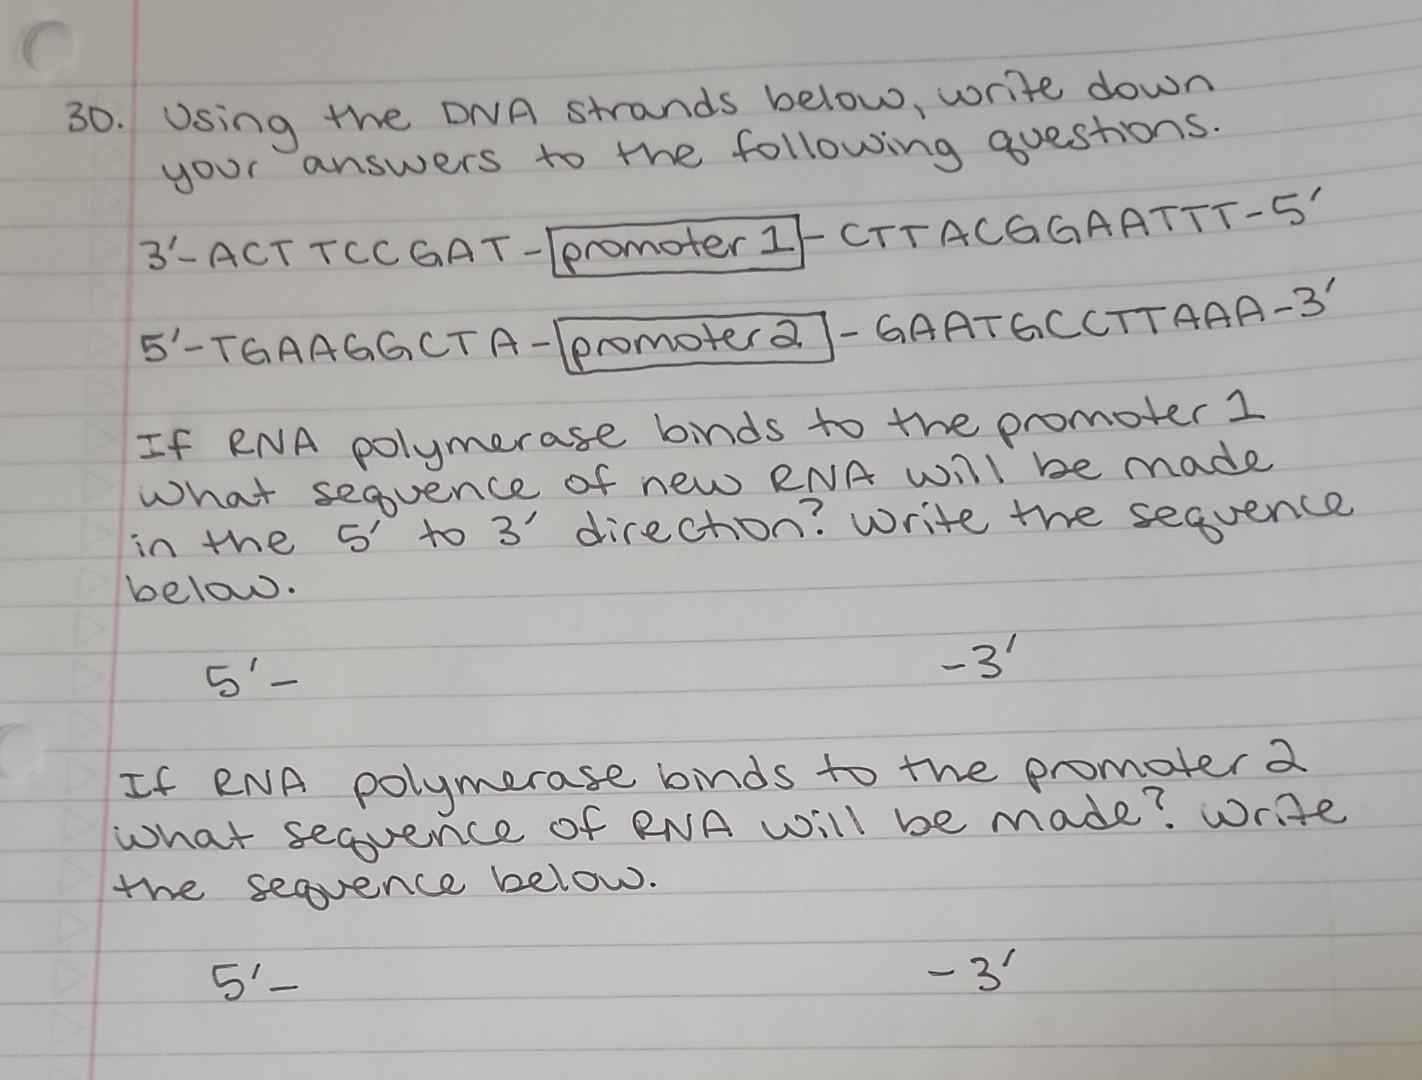 30. Using the DNA strands below, write down
your answers to the following questions.
3'-ACTTCCGAT-promoter 1-CTTACGGAATTT-5'
5'-TGAAGGCTA-promoter 2-GAATGCCTTAAA-3'
If RNA polymerase binds to the promoter 1
what sequence of new RNA will be made
in the 5' to 3' direction? Write the sequence
below.
5'- -3'
If RNA polymerase binds to the promoter 2
what sequence of RNA will be made? Write
the sequence below.
5'- -3'